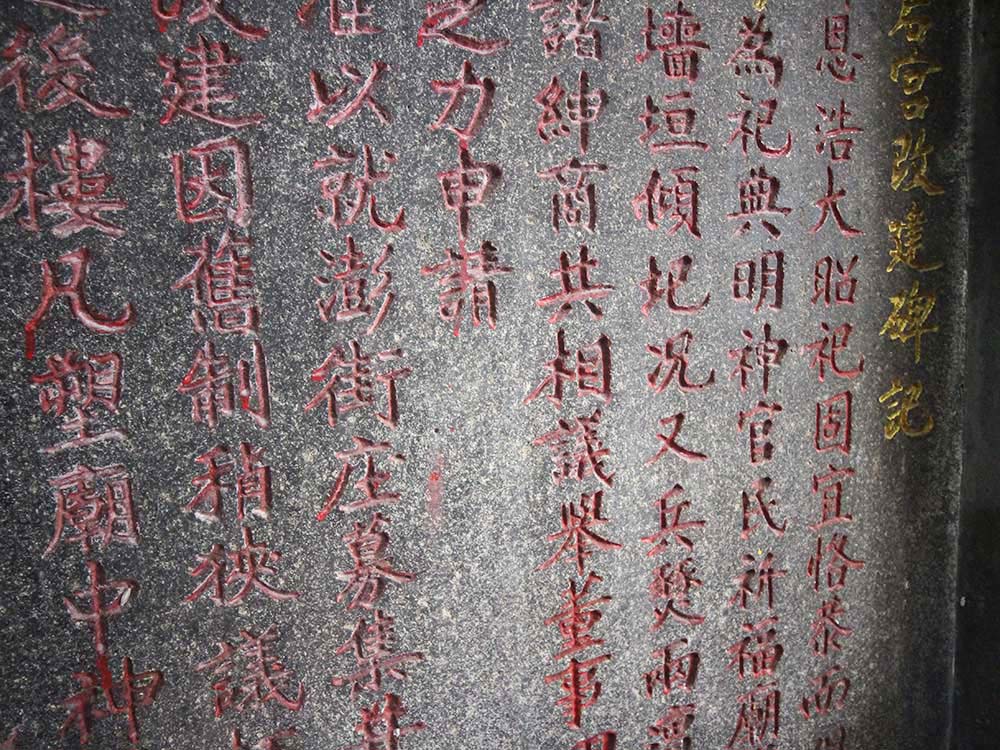 宮改建碑記
恩浩大昭祀固宜恪恭而
為祀典明神官民祈福廟
墻垣傾圮况又兵燹兩
諸紳商共相議舉董事
之力申請
准以就澎街庄募集
改建因舊制稍狹議
後樓凡塑廟中神